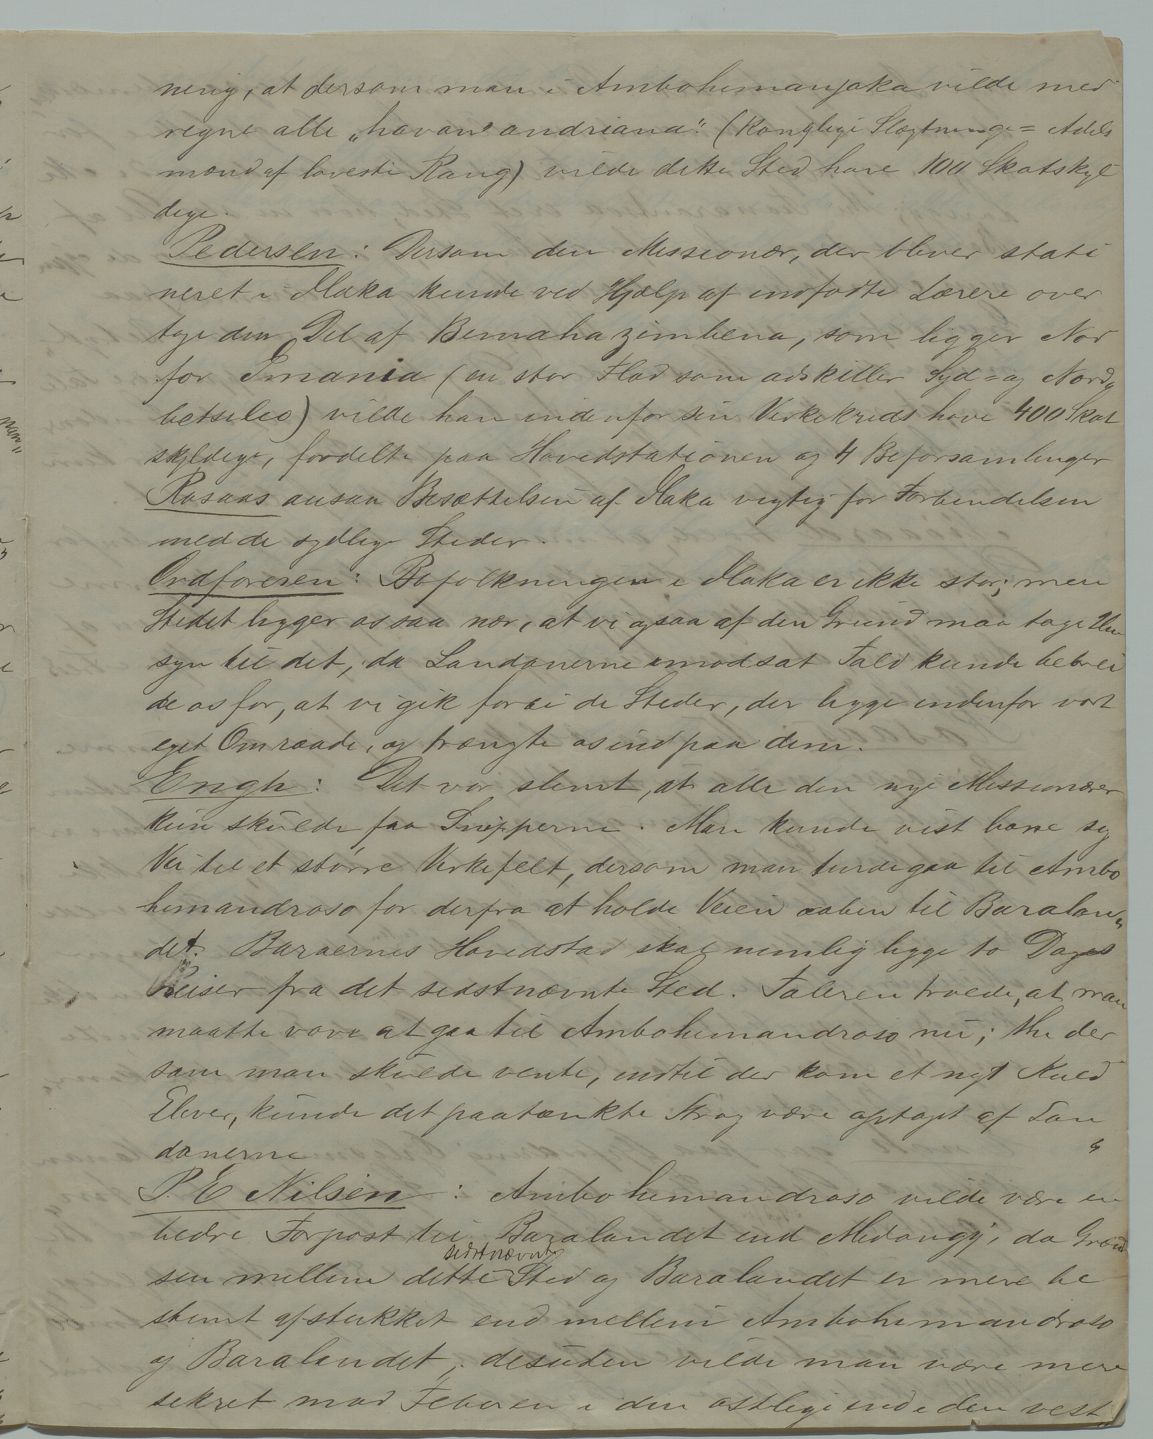 ning, at dersom man i Ambohimanjaka vilde med
regne alle „havan' andriana" (kongelige Slægtninge = Adels
mænd af laveste Rang) vilde dette Sted have 100 Skatskyl
dige.
Pedersen: Dersom den Missionær, der bliver stati
neret i Ilaka kunde ved Hjælp af indfødte Lærere over
tage den Del af Bemahazimbena, som ligger Nord
for Imania (en stor Flod som adskiller Syd= og Nord
betsileo) vilde han indenfor sin Virkekreds have 400 Skat
skyldige, fordelte paa Hovedstationen og 4 Biforsamlinger
Rosaas ansaa Besættelsen af Ilaka vigtig for Forbindelsen
med de sydlige Steder.
Ordføreren: Befolkningen i Ilaka er ikke stor; men
Stedet ligger os saa nær, at vi ogsaa af den Grund maa tage Hen
syn til det, da Londonerne i modsat Fald kunde bebrei
de os for, at vi gik forbi de Steder, der ligge indenfor vort
eget Omraade, og trængte os ind paa dem.
Engh: Det var slemt, at alle den nye Missionærer
kun skulde faa Snipperne. Man kunde vist bane sig
Vei til et større Virkefelt, dersom man turde gaa til Ambo
himandroso for derfra at holde Veien aaben til Baralan
det. Baraernes Hovedstad skal nemlig ligge to Dages
Reiser fra det sidstnævnte Sted. Taleren troede, at man
maatte vove at gaa til Ambohimandroso nu; thi der
som man skulde vente, indtil der kom et nyt Kuld
Elever, kunde det paatænkte Strøg være optaget af Lon
donerne
P. E Nilsen: Ambohimandroso vilde være en
bedre Forpost til Baralandet end Midongy, da Grænd
sen mellem dette sidstnævnte Sted og Baralandet er mere be
stemt afstukket end mellem Ambohimandroso
og Baralandet; desuden vilde man være mere
sikret mod Feberen i den østlige end i den vest